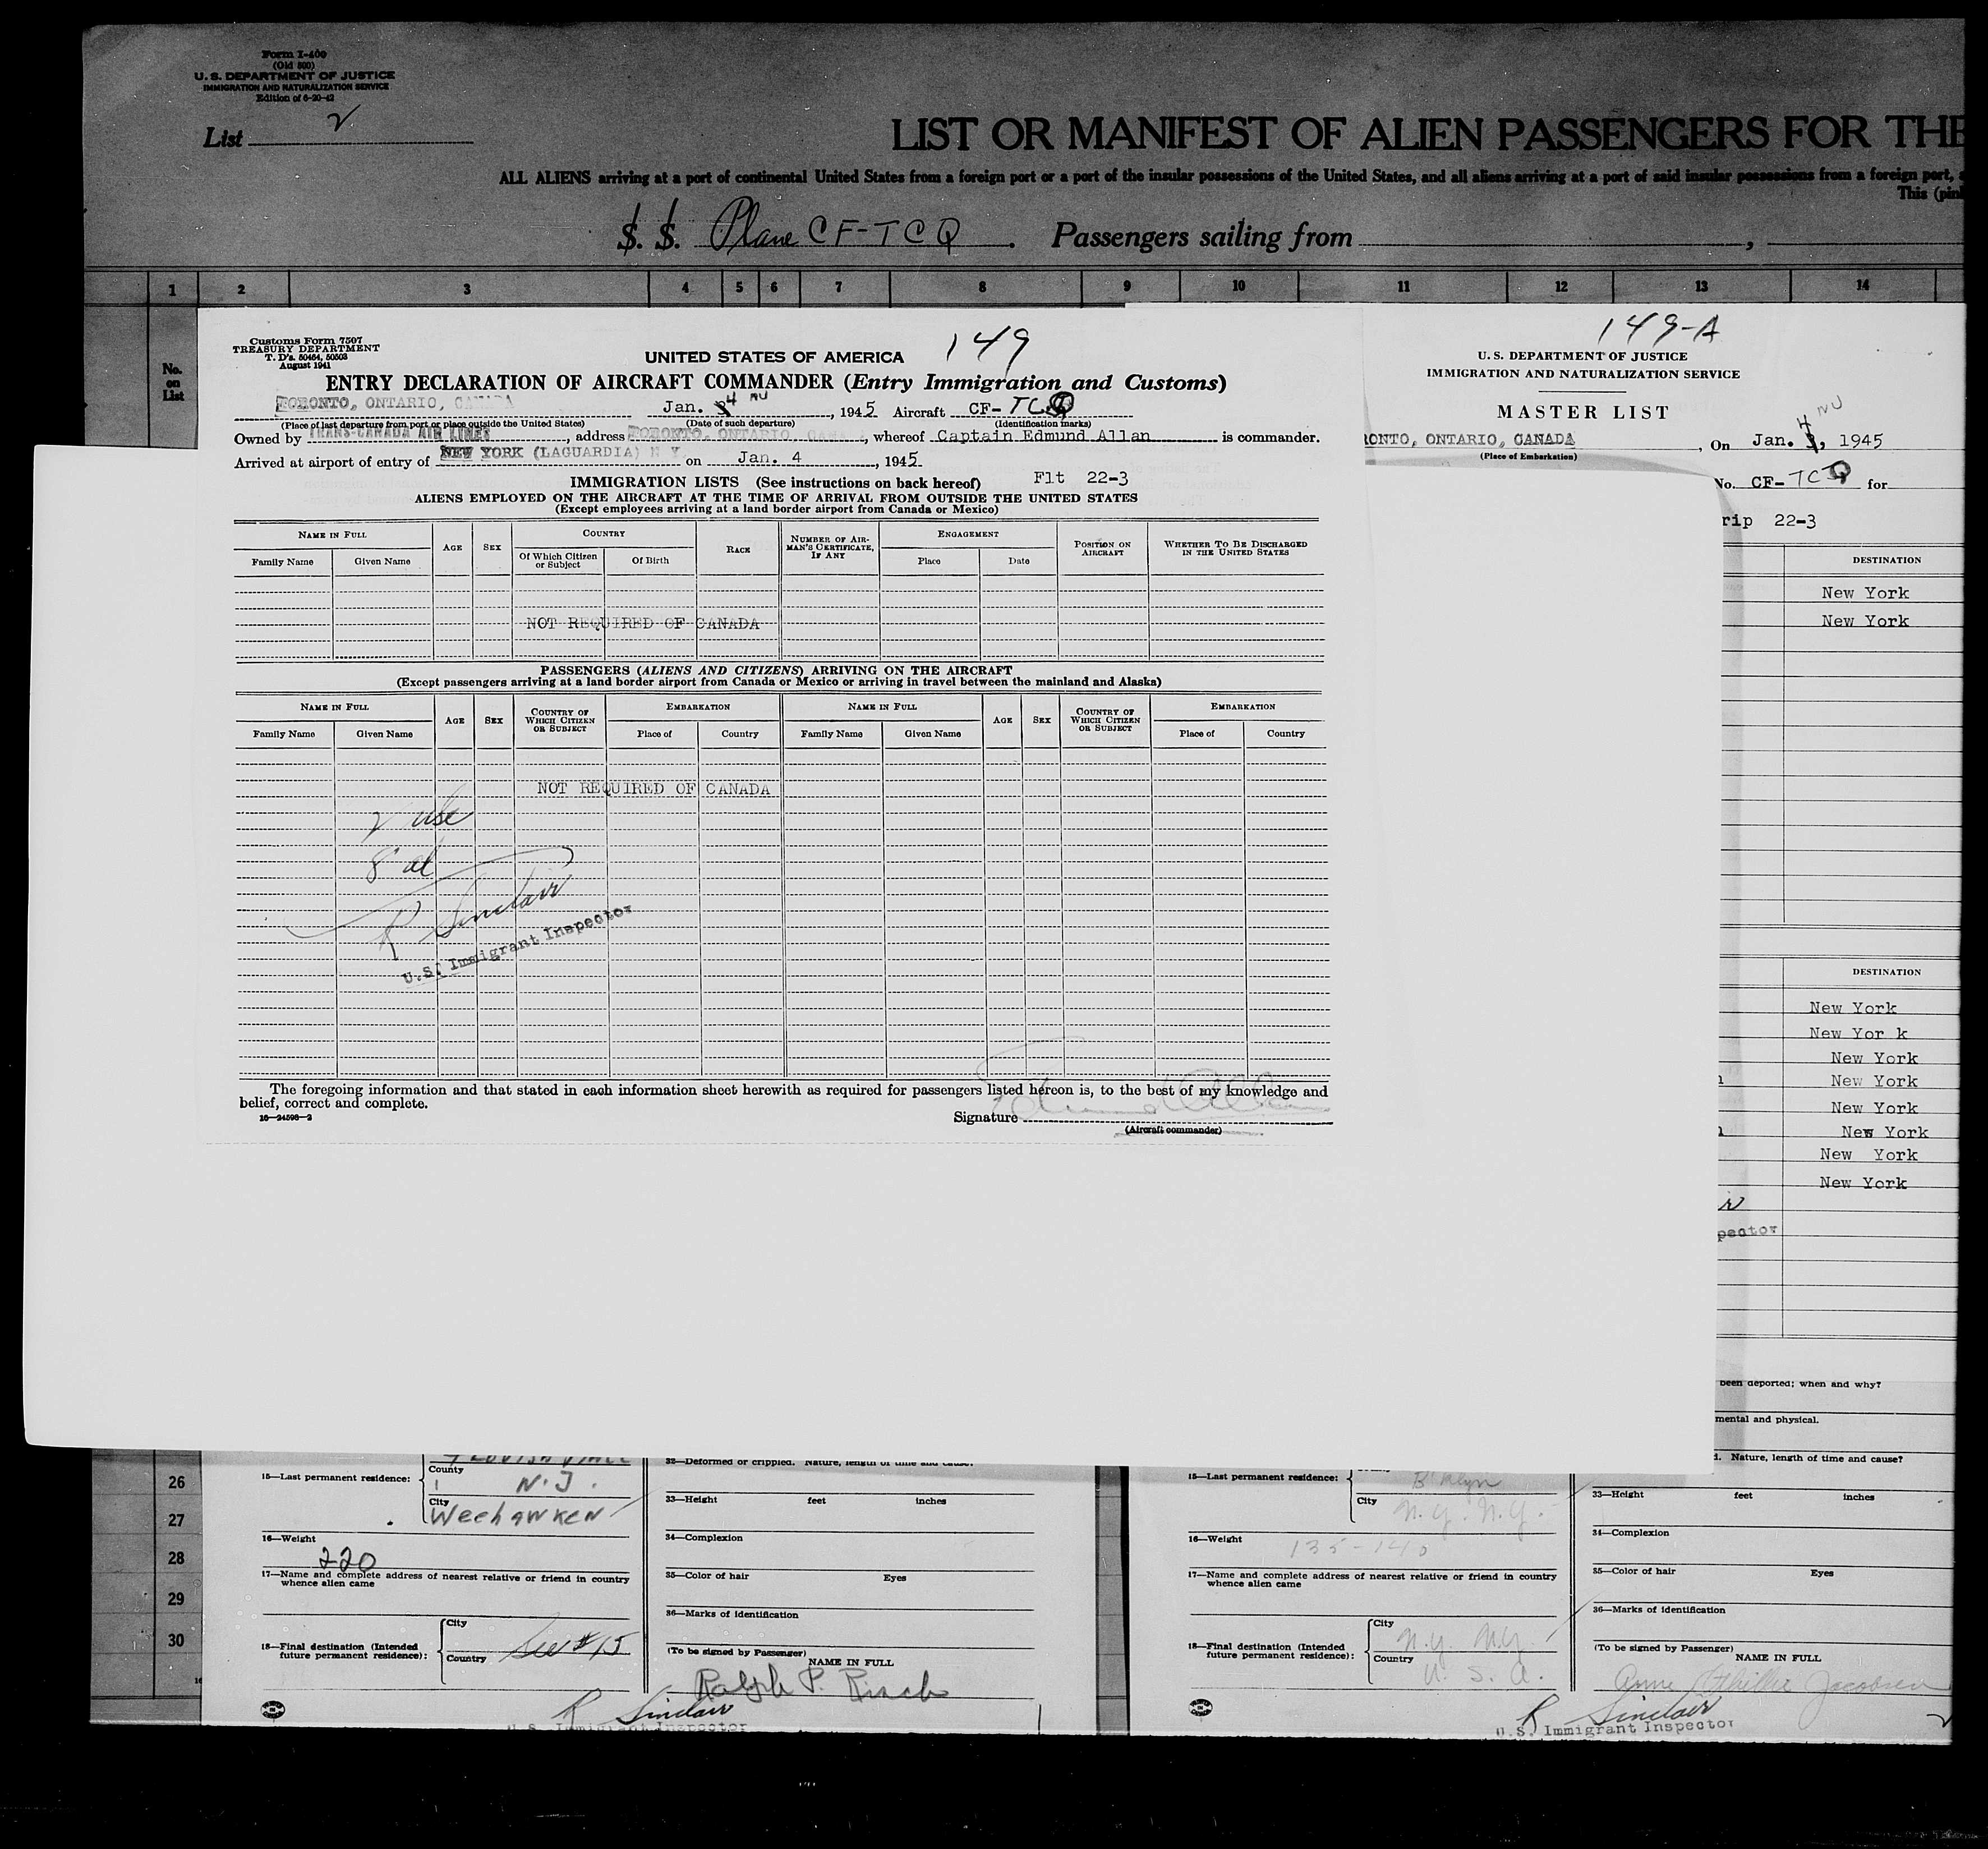 Form I-400
(Old 500)
U. S. DEPARTMENT OF JUSTICE
IMMIGRATION AND NATURALIZATION SERVICE
Edition of 6-20-42
List 2
LIST OR MANIFEST OF ALIEN PASSENGERS FOR THE
ALL ALIENS arriving at a port of continental United States from a foreign port or a port of the insular possessions of the United States, and all aliens arriving at a port of said insular possessions from a foreign port, a
This (pin
S. S. Plane CF-TCQ . Passengers sailing from ,
1 2 3 4 5 6 7 8 9 10 11 12 13 14
No.
on
List
Customs Form 7507
TREASURY DEPARTMENT
T. D's. 50464, 50503
August 1941
149
UNITED STATES OF AMERICA
ENTRY DECLARATION OF AIRCRAFT COMMANDER (Entry Immigration and Customs)
TORONTO, ONTARIO, CANADA Jan. 4 , 1945 Aircraft CF-TCQ
(Place of last departure from port or place outside the United States) (Date of such departure) (Identification marks)
Owned by TRANS-CANADA AIR LINES , address TORONTO, ONTARIO, CANA , whereof Captain Edmund Allan is commander.
Arrived at airport of entry of NEW YORK (LAGUARDIA) N Y on Jan. 4 , 1945
IMMIGRATION LISTS (See instructions on back hereof) Flt 22-3
ALIENS EMPLOYED ON THE AIRCRAFT AT THE TIME OF ARRIVAL FROM OUTSIDE THE UNITED STATES
(Except employees arriving at a land border airport from Canada or Mexico)
NAME IN FULL
AGE
SEX
COUNTRY
RACE
NUMBER OF AIR-
MAN'S CERTIFICATE,
IF ANY
ENGAGEMENT
POSITION ON
AIRCRAFT
WHETHER TO BE DISCHARGED
IN THE UNITED STATES
Family Name Given Name
Of Which Citizen
or Subject
Of Birth
Place Date
NOT REQUIRED OF CANADA
PASSENGERS (ALIENS AND CITIZENS) ARRIVING ON THE AIRCRAFT
(Except passengers arriving at a land border airport from Canada or Mexico or arriving in travel between the mainland and Alaska)
NAME IN FULL
AGE
SEX
COUNTRY OF
WHICH CITIZEN
OR SUBJECT
EMBARKATION
NAME IN FULL
AGE
SEX
COUNTRY OF
WHICH CITIZEN
OR SUBJECT
EMBARKATION
Family Name Given Name Place of Country Family Name Given Name Place of Country
NOT REQUIRED OF CANADA
2 usc
8 al
R Sinclair
U.S. Immigrant Inspector
The foregoing information and that stated in each information sheet herewith as required for passengers listed hereon is, to the best of my knowledge and
belief, correct and complete.
16-24598-2
Signature Edmund Allan
(Aircraft commander)
149-A
U. S. DEPARTMENT OF JUSTICE
IMMIGRATION AND NATURALIZATION SERVICE
MASTER LIST
RONTO, ONTARIO, CANADA , On Jan. 4, 1945
(Place of Embarkation)
No. CF-TCQ for
rip 22-3
DESTINATION
New York
New York
DESTINATION
New York
New Yor k
New York
New York
New York
New York
New York
New York
pector
been deported; when and why?
mental and physical.
Nature, length of time and cause?
26
27
28
29
30
15—Last permanent residence:
County
N.J.
City
Weehawken
16—Weight
220
17—Name and complete address of nearest relative or friend in country
whence alien came
18—Final destination (Intended
future permanent residence):
City
Country
See #15
32—Deformed or crippled. Nature, length of time and cause?
33—Height feet inches
34—Complexion
35—Color of hair Eyes
36—Marks of identification
(To be signed by Passenger)
NAME IN FULL
Ralph P.
R Sinclair
U.S. Immigrant Inspector
15—Last permanent residence:
B'klyn
City
N.Y. N.Y.
16—Weight
135-140
17—Name and complete address of nearest relative or friend in country
whence alien came
18—Final destination (Intended
future permanent residence):
City
N.Y. N.Y.
Country
U.S.A.
33—Height feet inches
34—Complexion
35—Color of hair Eyes
36—Marks of identification
(To be signed by Passenger)
NAME IN FULL
Anne Jacobsen
R Sinclair
U.S. Immigrant Inspector